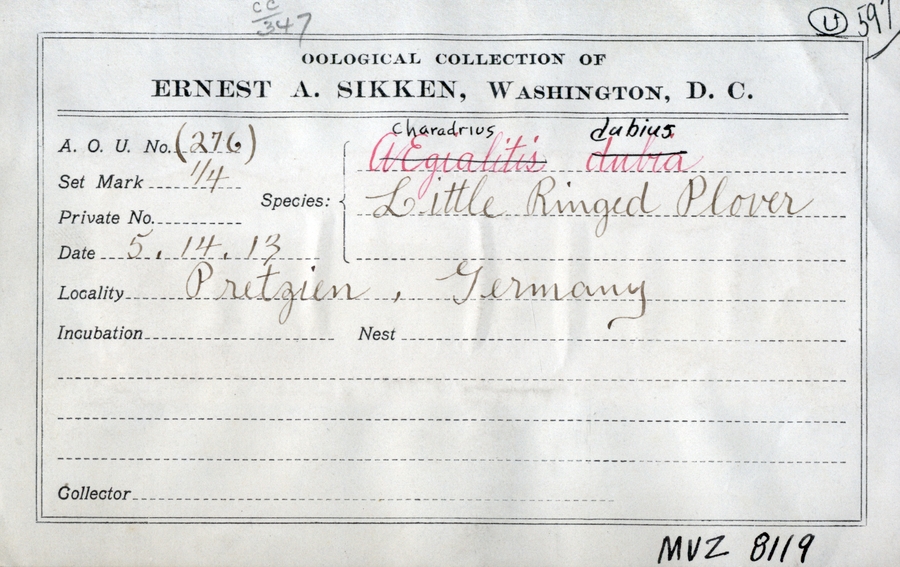 CC
347
4 597
OOLOGICAL COLLECTION OF
ERNEST A. SIKKEN, WASHINGTON, D. C.
A. O. U. No. (276)
Charadrius dubius
Ægialitis dubia
Set Mark 1/4
Species: { Little Ringed Plover
Private No.
Date 5. 14. 13
Locality Pretzien, Germany
Incubation Nest
Collector
MVZ 8119